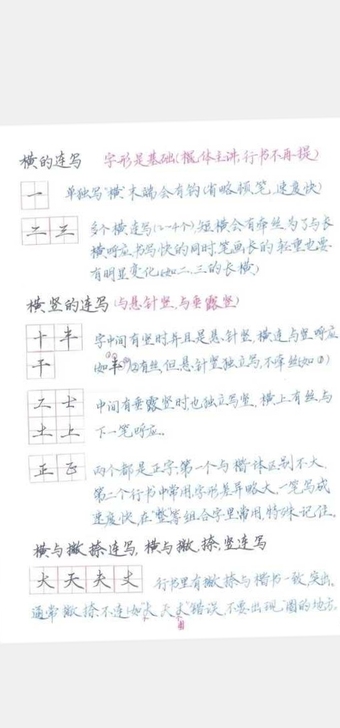 横的连写 字形是基础(楷体主讲,行书不再提)
一 单独写"横"末端会有钩(有略顿笔,速度快)
二 三 多个横连写(2~4个)短横会有牵丝为了与长
横呼应书写快的同时笔画长的轻重也要
有明显变化(如二.三的长横)
横竖的连写(与悬针竖,与垂露竖)
十 丰 字中间有竖时并且是悬针竖,横连与竖呼应
干 (如丰①有丝,但悬针竖独立写,不牵丝(如②)
工 士 中间有垂露竖时也独立写竖,横上有丝与
土 上 下一笔呼应。
正 正 两个都是正字,第一个与楷体区别不大,
第二个行书中常用,字形差异略大,一笔写成
速度快,在"整"等组合字里常用,特殊记住。
横与撇捺连写,横与撇,捺,竖连写
大 天 夫 丈 行书里有撇捺与楷书一致突出,
通常撇捺不连如"大天丈"错误,不要出现"圈的地方
圈